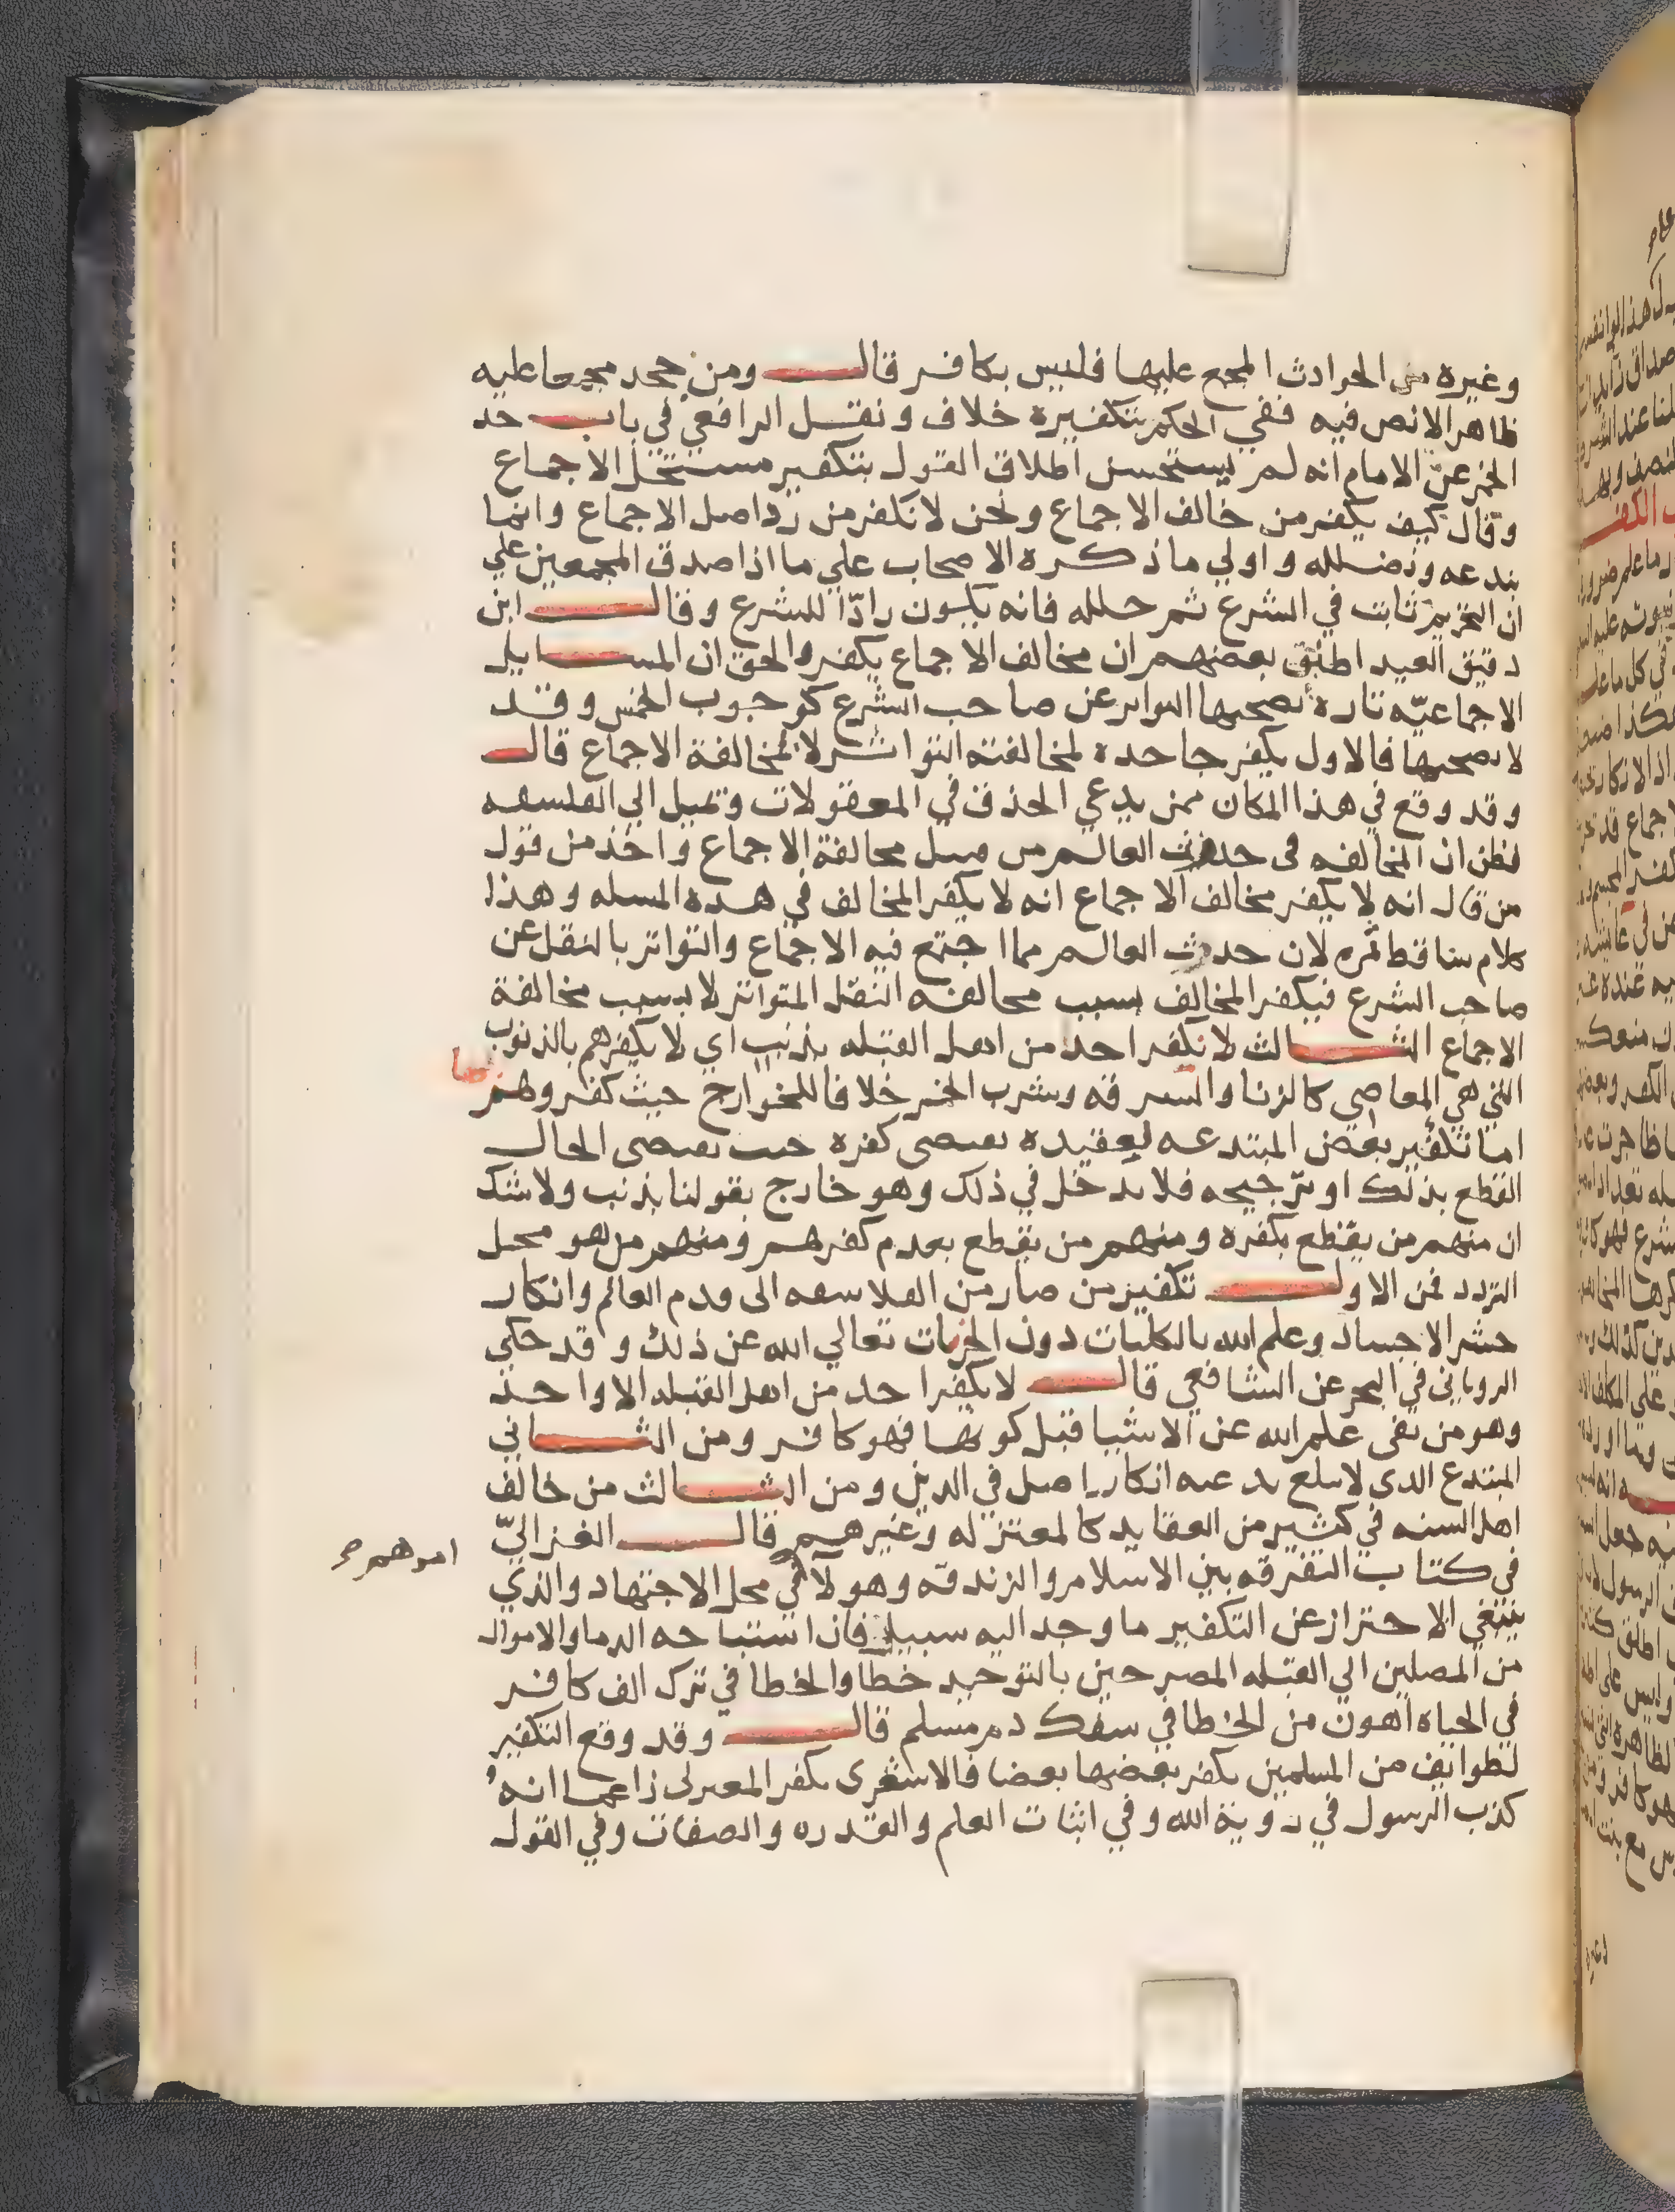 وغيره من الحوادث المجمع عليها فليس بكافر قال ومن جحد مجمعا عليه
ظاهرا لا نص فيه ففي الحكم بتكفيره خلاف ونقل الرافعي في باب حد
الخمر عن الامام انه لم يستحسن اطلاق القول بتكفير مستحل الاجماع
وقال كيف يكفر من خالف الاجماع ونحن لا نكفر من رد اصل الاجماع وانما
نبدعه ونضلله واولي ما ذكره الاصحاب علي ما اذا صدق المجمعين علي
ان التحريم ثابت في الشرع ثم حلله فانه يكون رادّا للشرع وقال ابن
دقيق العيد اطلق بعضهم ان مخالف الاجماع يكفر والحق ان المسايل
الاجماعيّه تارة يصحبها التواتر عن صاحب الشرع كوجوب الخمس وقد
لا يصحبها فالاول يكفر جاحده لمخالفته التواتر لا لمخالفة الاجماع قال
وقد وقع في هذا المكان ممن يدعي الحذق في المعقولات وتميل الي الفلسفه
فظن ان المخالفه فى حدوث العالم من قبيل مخالفة الاجماع واخذ من قول
من قال انه لا يكفر مخالف الاجماع انه لا يكفر المخالف في هذه المسله وهذا
كلام ساقط بمره لان حدوث العالم مما اجتمع فيه الاجماع والتواتر بالنقل عن
صاحب الشرع فيكفر المخالف بسبب مخالفته النقل المتواتر لا بسبب مخالفة
الاجماع الثالث لا نكفر احد من اهل القبله بذنب اي لا يكفرهم بالذنوب
التي هي المعاصي كالزنا والسرقه وشرب الخمر خلافا للخوارج حيث كفروهم
اما تكفير بعض المبتدعه لعقيده تقتضى كفره حيث يقتضى الحال
القطع بذلك او ترجيحه فلا يدخل في ذلك وهو خارج بقولنا بذنب ولا شك
ان منهم من يقطع بكفره ومنهم من يقطع بعدم كفرهم ومنهم من هو محل
التردد فمن الاول تكفير من صار من الفلاسفه الى قدم العالم وانكار
حشر الاجساد وعلم الله بالكليات دون الجزيات تعالي الله عن ذلك وقد حكي
الروياني في البحر عن الشافعي قال لا يكفر احد من اهل القبله الا واحد
وهو من نفى علم الله عن الاشيا قبل كونها فهو كافر ومن الثاني
المبتدع الذى لا تبلغ بدعته انكار اصل في الدين ومن الثالث من خالف
اهل السنه في كثير من العقايد كالمعتزله وغيرهم قال الغزاليّ
امرهم صح
في كتاب التفرقه بين الاسلام والزندقه وهولآ في محل الاجتهاد والذي
ينبغي الاحتراز عن التكفير ما وجد اليه سبيل فان استباحه الدما والاموال
من المصلين الي القبله المصرحين بالتوحيد خطا والخطا في ترك الف كافر
في الحياه اهون من الخطا في سفك دم مسلم قال وقد وقع التكفير
لطوايف من المسلمين يكفر بعضها بعضا فالاشعرى يكفر المعتزلى زاعما انه
كذب الرسول في روية الله وفي اثبات العلم والقدره والصفات وفي القول